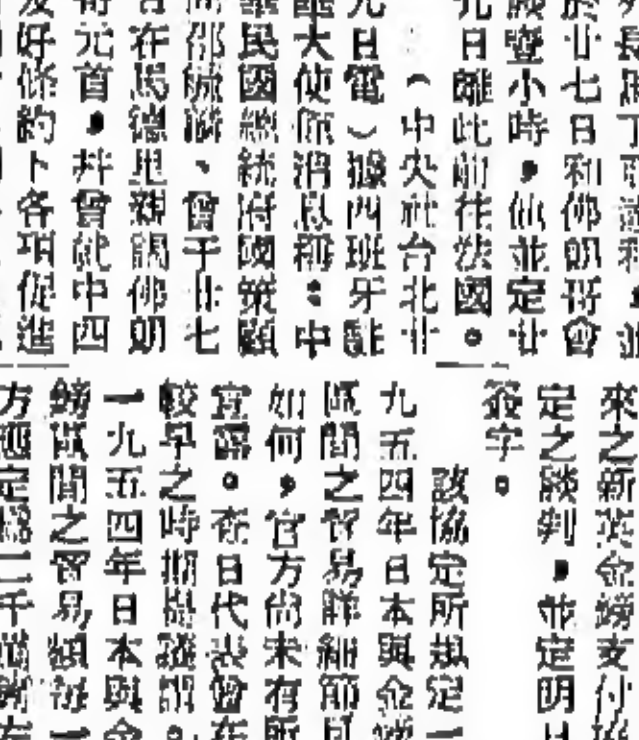 於廿七日和佛朗哥會
談壹小時，他並定廿
九日離此前往法國。
（中央社台北廿
九日電）據西班牙駐
華大使館消息稱：中
華民國總統府國策顧
問邵毓麟、曾于廿七
日在馬德里親謁佛朗
哥元首，并曾就中西
友好條約下各項促進
來之新英金鎊支付協
定之談判，並定明日
簽字。
該協定所規定一
九五四年日本與金鎊
區間之貿易詳細節目
如何，官方尚未有所
宣露。在日代表曾在
較早之時期
一九五四年日本與金
鎊區間之貿易額每一
方應定為二千